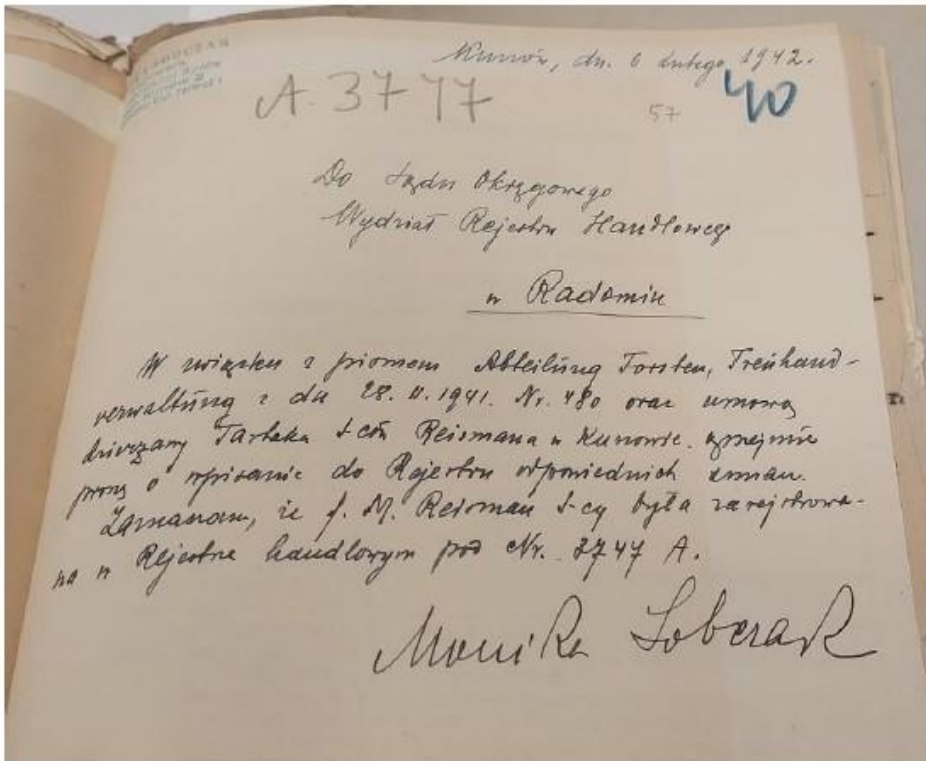 Kunów, dn. 6 lutego 1942.
A. 3747
57
40
Do Sądu Okręgowego
Wydział Rejestru Handlowego
w Radomiu
W związku z pismem Abteilung Forsten, Treuhand-
verwaltung z dn 28. II. 1941. Nr. 480 oraz umową
dzierżawy Tartaku S-ców Reismana w Kunowie. uprzejmie
proszę o wpisanie do Rejestru odpowiednich zmian.
Zaznaczam, że f. M. Reisman S-cy była zarejstrowa-
na w Rejestrze handlowym pod Nr. 3747 A.
Monika Sobczak